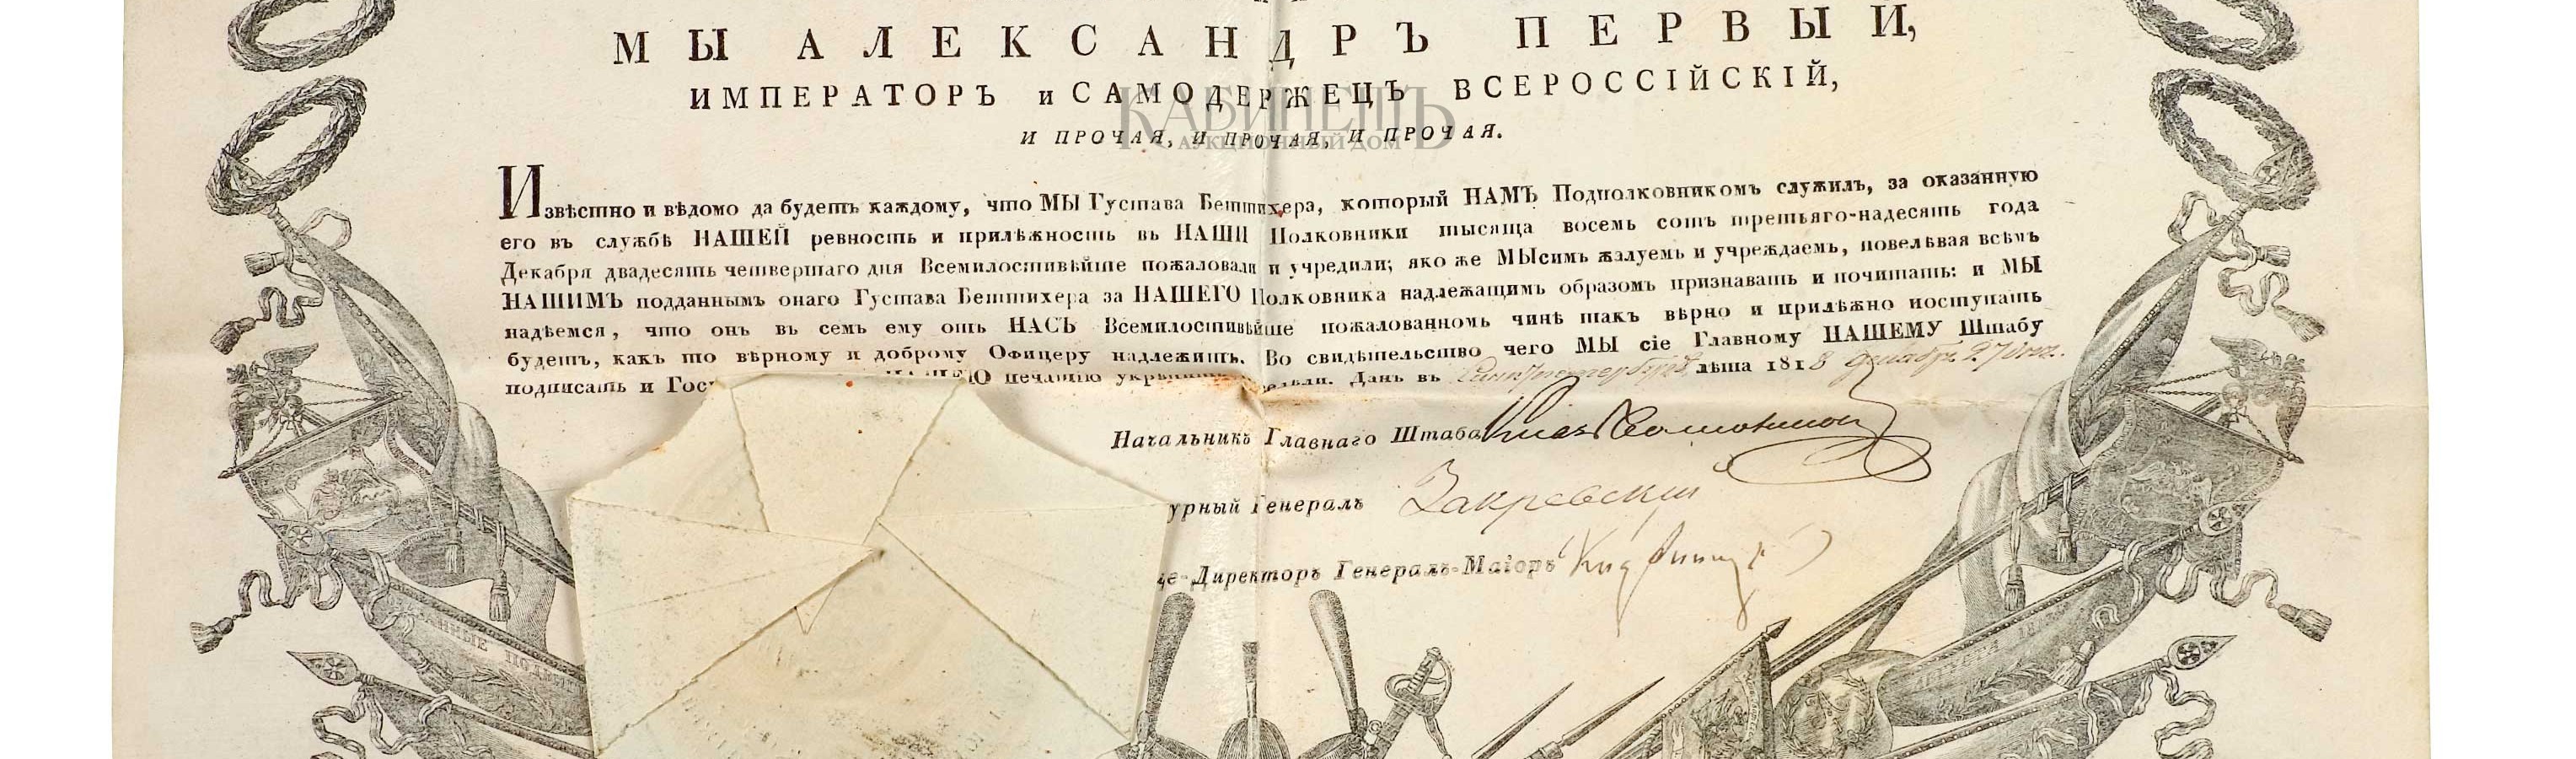 МЫ АЛЕКСАНДРЪ ПЕРВЫЙ,
ИМПЕРАТОРЪ и САМОДЕРЖЕЦЪ ВСЕРОССІЙСКІЙ,
КАБИНЕТЪ
АУКЦИОННЫЙ ДОМ
И ПРОЧАЯ, И ПРОЧАЯ, И ПРОЧАЯ.
Извѣстно и вѣдомо да будетъ каждому, что МЫ Густава Беттихера, который НАМЪ Подполковникомъ служилъ, за оказанную
его въ службѣ НАШЕЙ ревность и прилѣжность въ НАШИ Полковники тысяща восемь сотъ третьяго-надесять года
Декабря двадесять четвертаго дня Всемилостивѣйше пожаловали и учредили; яко же МЫ симъ жалуемъ и учреждаемъ, повелѣвая всѣмъ
НАШИМЪ подданнымъ онаго Густава Беттихера за НАШЕГО Полковника надлежащимъ образомъ признавать и почитать: и МЫ
надѣемся, что онъ въ семъ ему отъ НАСЪ Всемилостивѣйше пожалованномъ чинѣ такъ вѣрно и прилѣжно поступать
будетъ, какъ то вѣрному и доброму Офицеру надлежитъ. Во свидѣтельство чего МЫ сіе Главному НАШЕМУ Штабу
подписать и Гос НАШЕЮ печатію укрѣпить велѣли. Данъ въ Санктпетербургѣ лѣта 1818 декабря 27 дня.
Начальникъ Главнаго Штаба Князь Волконской
урный Генералъ Закревскій
це-Директоръ Генералъ-Маіоръ